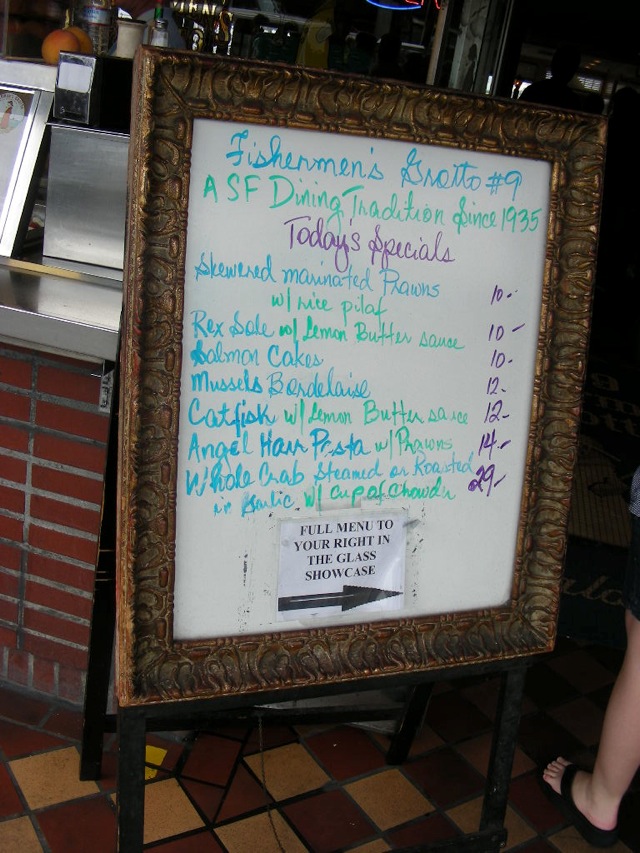 Fishermen's Grotto #9
A SF Dining Tradition Since 1935
Today's Specials
Skewered marinated Prawns 10-
w/ rice pilaf
Rex Sole w/ Lemon Butter sauce 10-
Salmon Cakes 10-
Mussels Bordelaise 12-
Catfish w/ Lemon Butter sauce 12-
Angel Hair Pasta w/ Prawns 14-
Whole Crab Steamed or Roasted 29-
in Garlic w/ Cup of Chowder
FULL MENU TO
YOUR RIGHT IN
THE GLASS
SHOWCASE